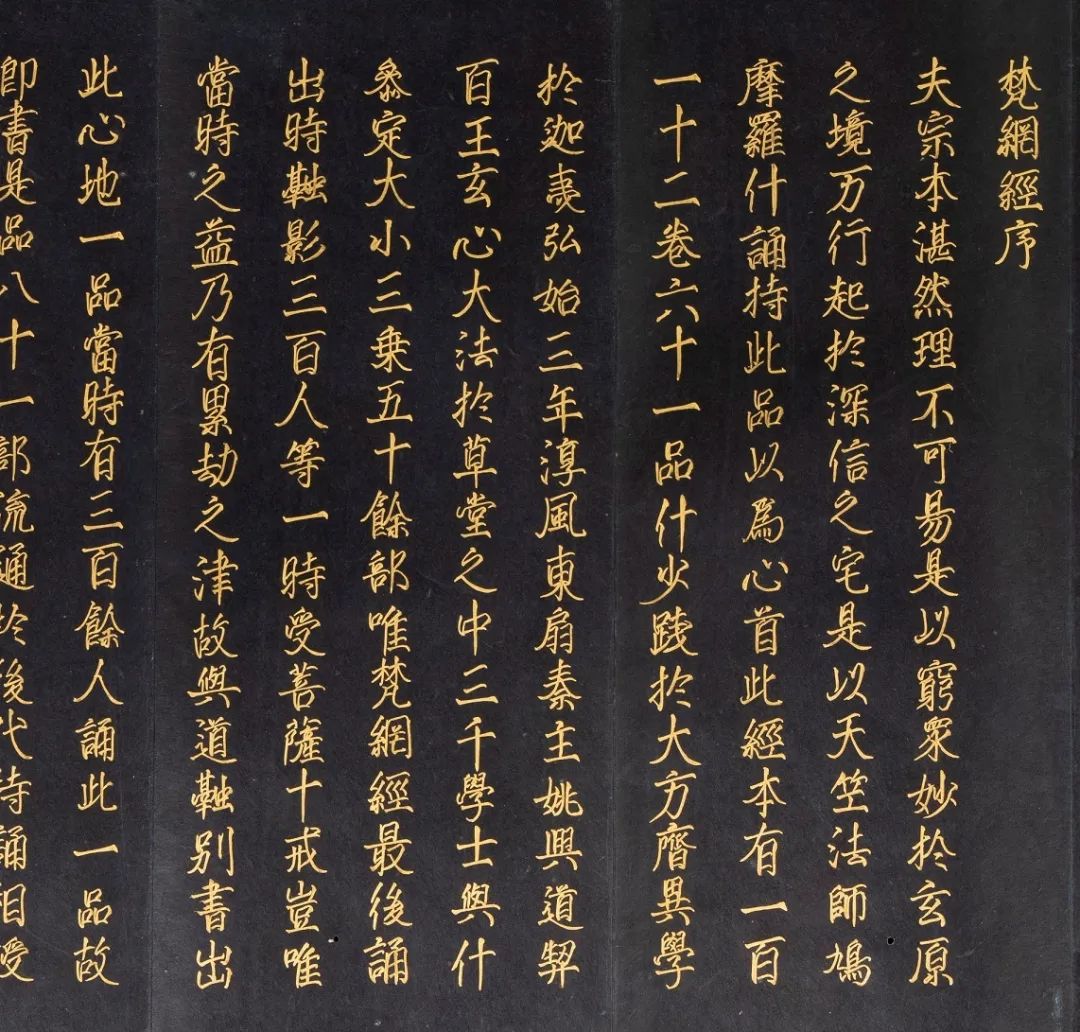 梵網經序
夫宗本湛然理不可易是以窮衆妙於玄原
之境万行起於深信之宅是以天竺法師鳩
摩羅什誦持此品以爲心首此經本有一百
一十二卷六十一品什少踐於大方齊異學
於迦夷弘始三年淳風東扇秦主姚興道契
百王玄心大法於草堂之中三千學士與什
叅定大小三乗五十餘部唯梵網經最後誦
出時融影三百人等一時受菩薩十戒豈唯
當時之益乃有累劫之津故與道融别書出
此心地一品當時有三百餘人誦此一品故
即書是品八十一部流通於後代持誦相受